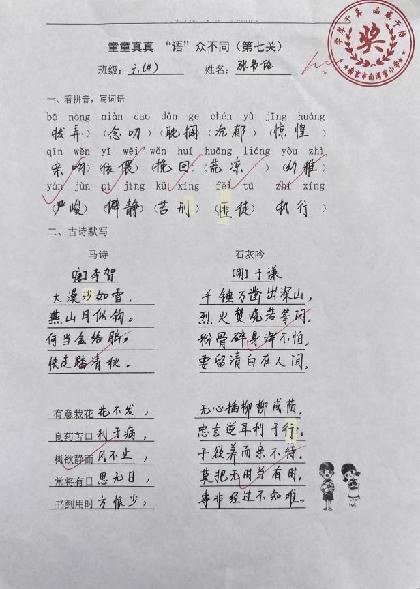 童童真真 “语”众不同（第七关）
班级：六(4) 姓名：
一、看拼音，写词语
bō nòng niàn dao dān ge chén yù jīng huáng
(拨弄)(念叨)(耽搁)(沉郁)(惊惶)
qīn wěn yī wēi wǎn huí huāng liáng yòu zhì
亲吻)(依偎)(挽回)(荒凉)(幼稚)
yán jùn pì jìng kǔ xíng fěi tú zhí xíng
(严峻)(僻静)(苦刑)(匪徒)(执行)
二、古诗默写
马诗 石灰吟
[唐]李贺 [明]于谦
大漠沙如雪， 千锤万凿出深山，
燕山月似钩。 烈火焚烧若等闲。
何当金络脑， 粉骨碎身浑不怕，
快走踏清秋。 要留清白在人间。
有意栽花花不发， 无心插柳柳成荫。
良药苦口利于病， 忠言逆耳利于行。
树欲静而风不止， 子欲养而亲不待。
常将有日思无日， 莫把无时当有时。
书到用时方恨少， 事非经过不知难。
奖